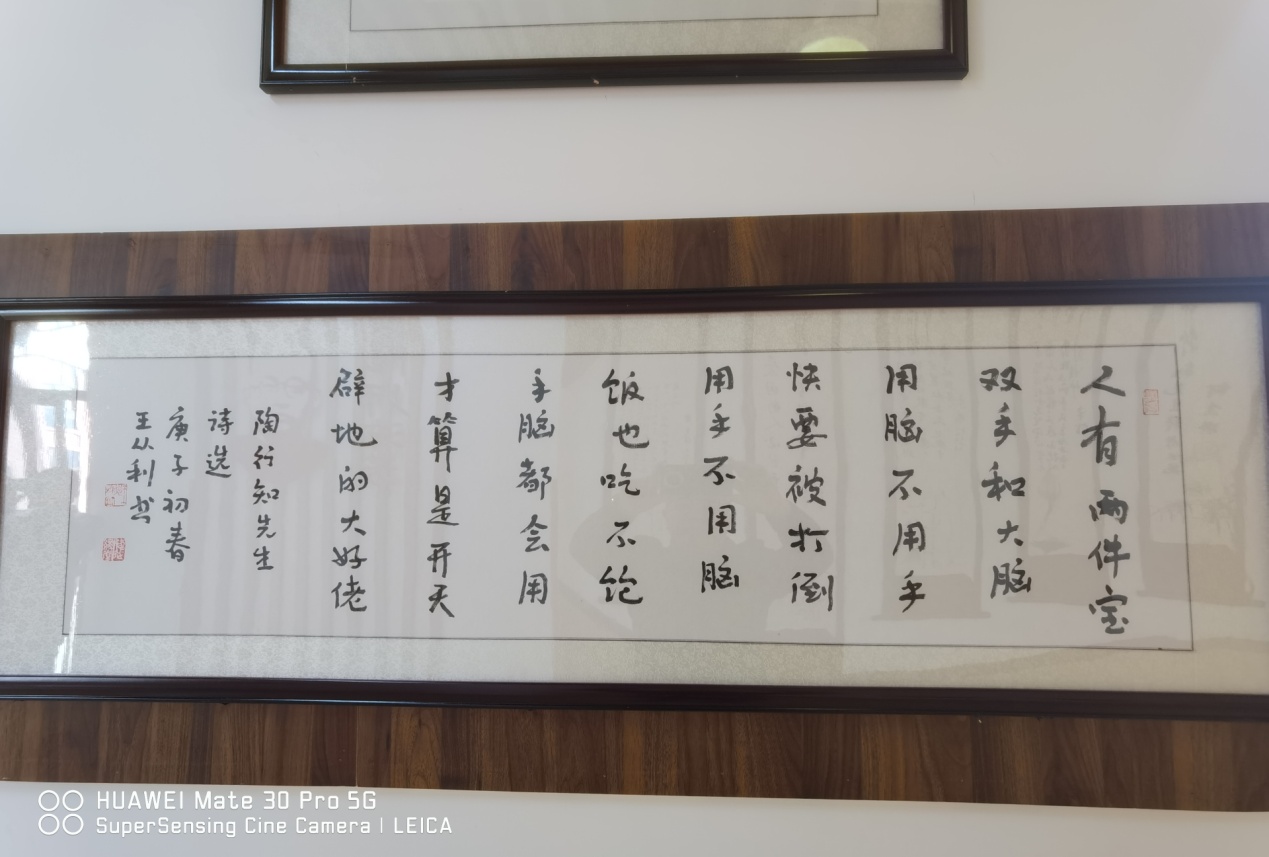 人有两件宝
双手和大脑
用脑不用手
快要被打倒
用手不用脑
饭也吃不饱
手脑都会用
才算是开天
辟地的大好佬
陶行知先生
诗选
庚子初春
王从利书
HUAWEI Mate 30 Pro 5G
SuperSensing Cine Camera | LEICA